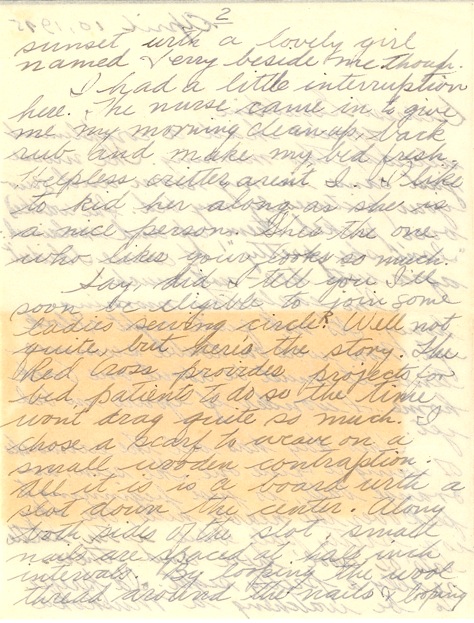 2
sunset with a lovely girl
named Jerry beside me though.
I had a little interruption
here. The nurse came in to give
me my morning cleanup, back
rub and make my bed fresh.
Helpless critter arent I. I like
to kid her along as she is
a nice person. Shes the one
who likes your looks so much.
Say, did I tell you I'll
soon be eligible to join some
ladies sewing circle? Well not
quite, but here's the story. The
Red Cross provides projects for
bed patients to do so the time
wont drag quite so much. I
chose a scarf to weave on a
small wooden contraption.
All it is is a board with a
slot down the center. Along
both sides of the slot, small
nails are spaced at half inch
intervals. By looping the wool
thread around the nails & looping